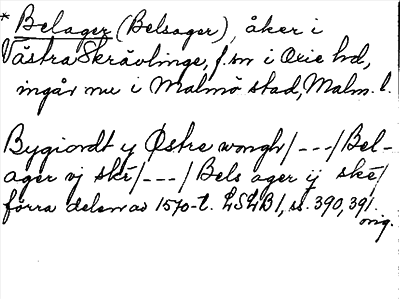 * Belager (Belsager), åker i
Västra Skrävlinge, f. sn i Oxie hd,
ingår nu i Malmö stad, Malm. l.
Bygiordt y Østre wongh /---/ Bel-
ager vj ske /---/ Bels ager ij ske /
förra delen av 1570-t. LSLB 1, ss. 390, 391.
orig.